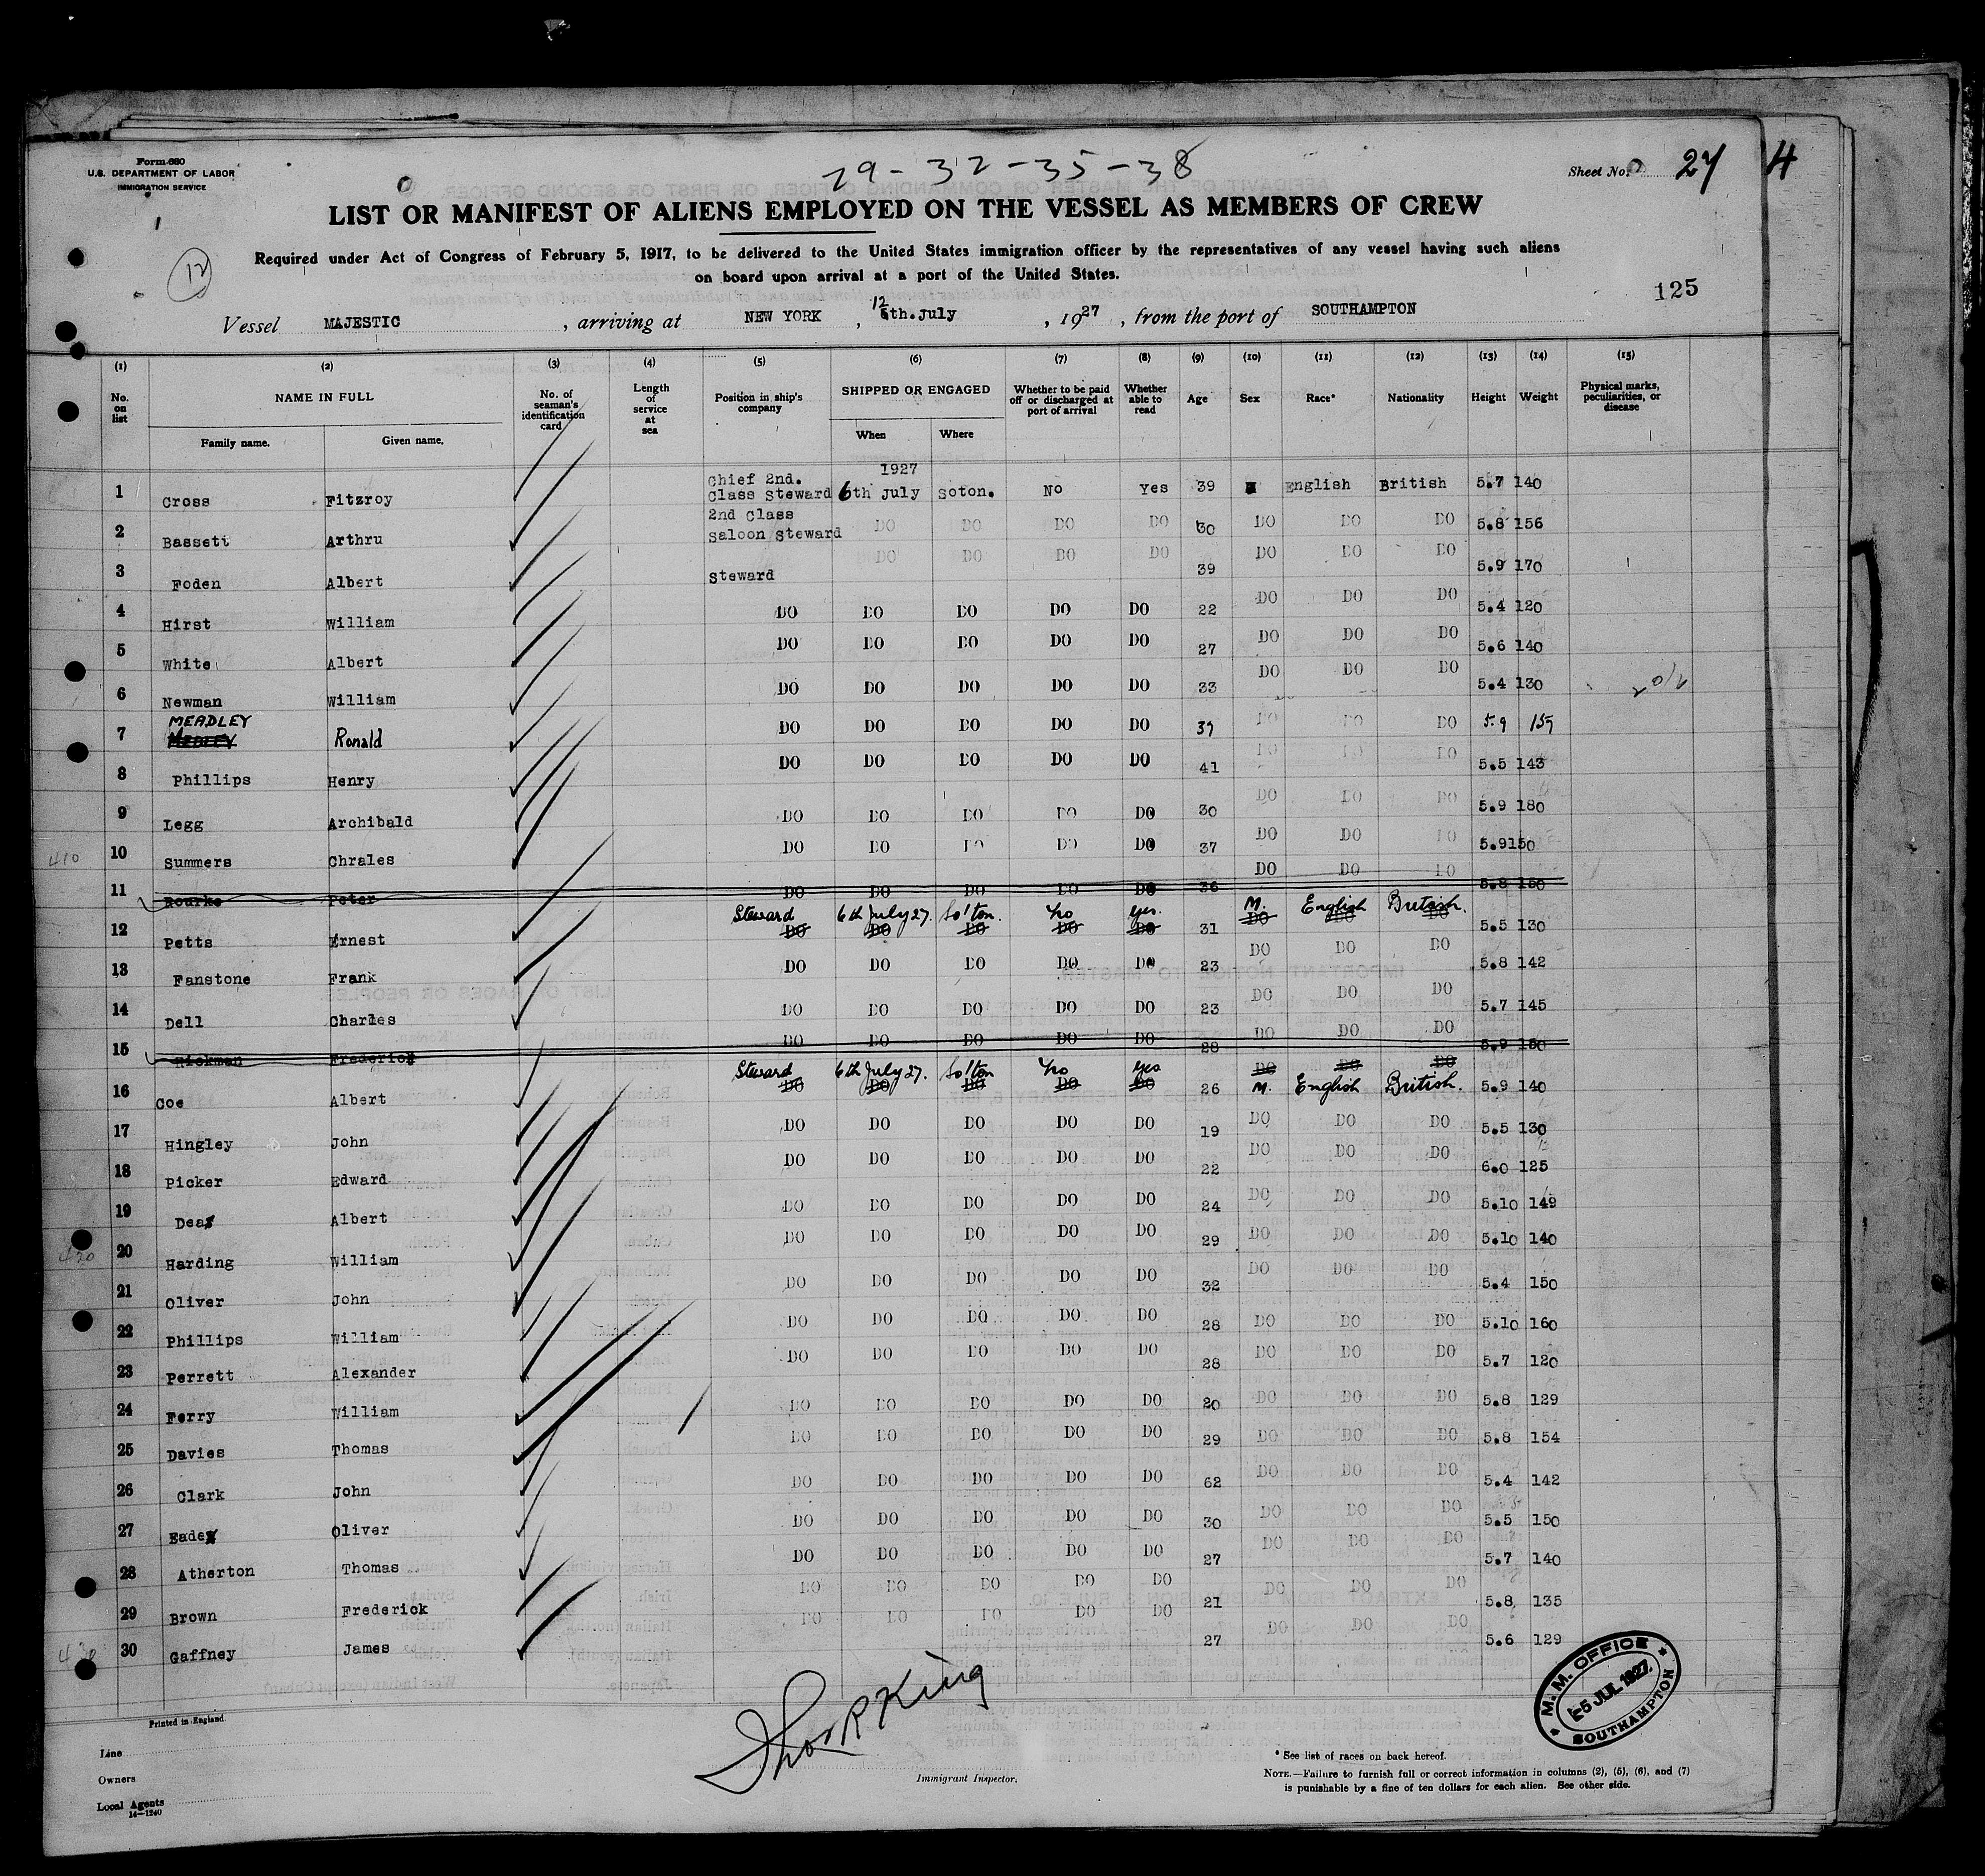 Form 680
U.S. DEPARTMENT OF LABOR
IMMIGRATION SERVICE
29-32-35-38
Sheet No. 27 4
LIST OR MANIFEST OF ALIENS EMPLOYED ON THE VESSEL AS MEMBERS OF CREW
Required under Act of Congress of February 5, 1917, to be delivered to the United States immigration officer by the representatives of any vessel having such aliens
on board upon arrival at a port of the United States.
12
125
Vessel MAJESTIC , arriving at NEW YORK , 12 th. July , 1927 , from the port of SOUTHAMPTON
(1) (2) (3) (4) (5) (6) (7) (8) (9) (10) (11) (12) (13) (14) (15)
No. on list NAME IN FULL Family name. Given name. No. of seaman's identification card Length of service at sea Position in ship's company SHIPPED OR ENGAGED When Where Whether to be paid off or discharged at port of arrival Whether able to read Age Sex Race* Nationality Height Weight Physical marks, peculiarities, or disease
1927
1 Cross Fitzroy Chief 2nd. Class Steward 6th July Soton. No Yes 39 English British 5.7 140
2 Bassett Arthru 2nd Class Saloon Steward DO DO DO DO 30 DO DO DO 5.8 156
3 Foden Albert Steward DO DO DO DO 39 DO DO DO 5.9 170
4 Hirst William DO DO DO DO DO 22 DO DO DO 5.4 120
5 White Albert DO DO DO DO DO 27 DO DO DO 5.6 140
6 Newman William DO DO DO DO DO 33 DO DO DO 5.4 130
7 MEADLEY MEDLEY Ronald DO DO DO DO DO 37 DO DO DO 5.9 157
8 Phillips Henry DO DO DO DO DO 41 DO DO DO 5.5 143
9 Legg Archibald DO DO DO DO DO 30 DO DO DO 5.9 180
410 10 Summers Chrales DO DO DO DO DO 37 DO DO DO 5.9 150
11 Rourke Peter DO DO DO DO DO 36 DO DO DO 5.8 150
12 Petts Ernest Steward 6th July 27. So'ton. No yes. 31 M. English British. 5.5 130
13 Fanstone Frank DO DO DO DO DO 23 DO DO DO 5.8 142
14 Dell Charles DO DO DO DO DO 23 DO DO DO 5.7 145
15 Rickman Frederick DO DO DO DO DO 28 DO DO DO 5.9 150
16 Coe Albert Steward 6th July 27. So'ton No yes 26 M. English British. 5.9 140
17 Hingley John DO DO DO DO DO 19 DO DO DO 5.5 130
18 Picker Edward DO DO DO DO DO 22 DO DO DO 6.0 125
19 Dea Albert DO DO DO DO DO 24 DO DO DO 5.10 149
420 20 Harding William DO DO DO DO DO 29 DO DO DO 5.10 140
21 Oliver John DO DO DO DO DO 32 DO DO DO 5.4 150
22 Phillips William DO DO DO DO DO 28 DO DO DO 5.10 160
23 Perrett Alexander DO DO DO DO DO 28 DO DO DO 5.7 120
24 Ferry William DO DO DO DO DO 20 DO DO DO 5.8 129
25 Davies Thomas DO DO DO DO DO 29 DO DO DO 5.8 154
26 Clark John DO DO DO DO DO 62 DO DO DO 5.4 142
27 Eade Oliver DO DO DO DO DO 30 DO DO DO 5.5 150
28 Atherton Thomas DO DO DO DO DO 27 DO DO DO 5.7 140
29 Brown Frederick DO DO DO DO DO 21 DO DO DO 5.8 135
430 30 Gaffney James DO DO DO DO DO 27 DO DO DO 5.6 129
M. M. OFFICE
5 JUL 1927
SOUTHAMPTON
Printed in England
Line
Owners
Local Agents
14—1240
King
Immigrant Inspector.
* See list of races on back hereof.
NOTE.—Failure to furnish full or correct information in columns (2), (5), (6), and (7)
is punishable by a fine of ten dollars for each alien. See other side.